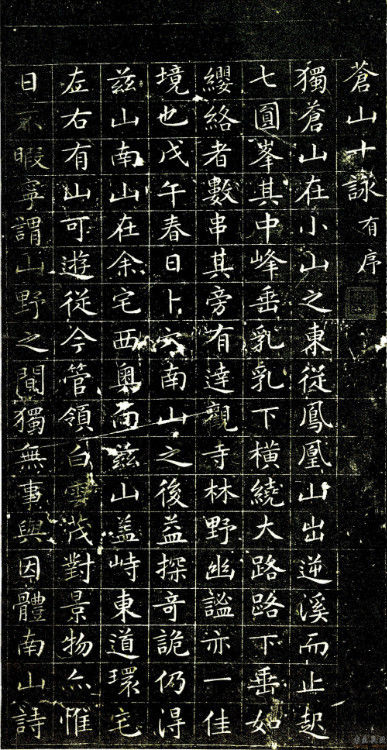 蒼山十詠 有序
獨蒼山在小山之東從鳳凰山出逆溪而止起
七圓峯其中峰垂乳乳下橫繞大路路下垂如
纓絡者數串其旁有達觀寺林野幽謐亦一佳
境也戊午春日卜穴南山之後益探奇詭仍淂
兹山南山在余宅西奧而兹山盖峙東道環宅
左右有山可遊從今管領白雲茂對景物亦惟
日不暇寧謂山野之間獨無事與因體南山詩